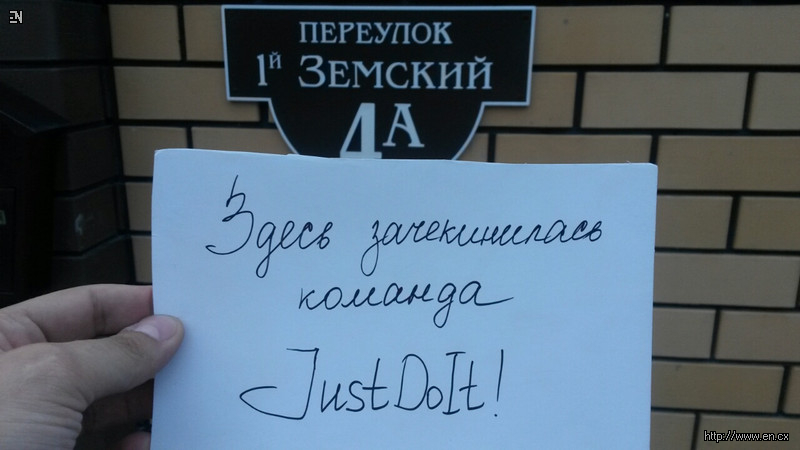 EN
ПЕРЕУЛОК
1й ЗЕМСКИЙ
4А
Здесь зачекинилась
команда
JustDoIt!
http://www.en.cx